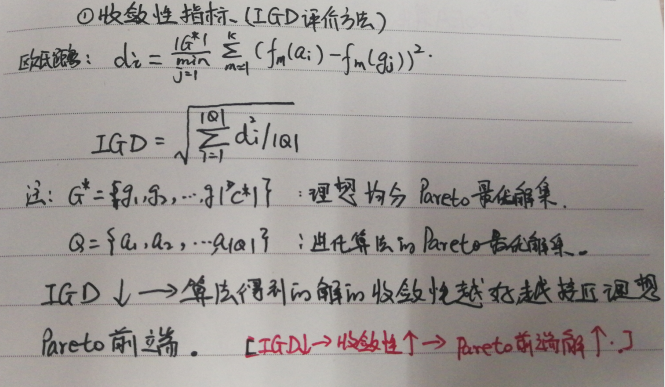 ①收敛性指标、(IGD评价方法)
欧氏距离: di = |G*| min j=1 K ∑ m=1 (fm(ai) - fm(gj))².
IGD = √(|Q| ∑ i=1 di²/|Q|)
注: G* = {g1, g2, ..., g|Pc*|} : 理想均分Pareto最优解集.
Q = {a1, a2, ... a|Q|} : 进化算法的Pareto最优解集。
IGD ↓ → 算法得到的解的收敛性越好越接近理想
Pareto前端. [IGD↓→收敛性↑→Pareto前端解↑.]